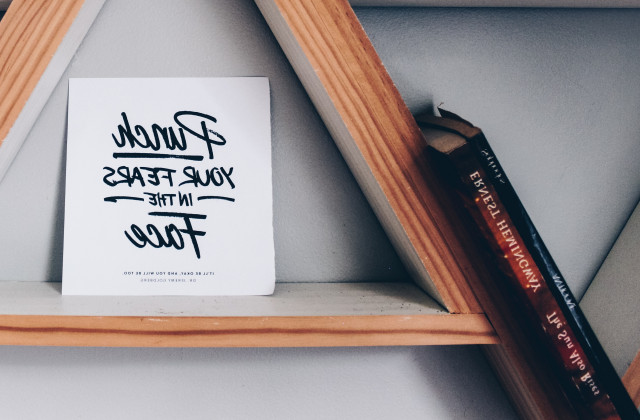 Punch
YOUR FEARS
IN THE
Face
IT'LL BE OKAY, AND YOU WILL BE TOO.
DR. JEREMY GOLDBERG
ERNEST HEMINGWAY
The Sun Also Rises